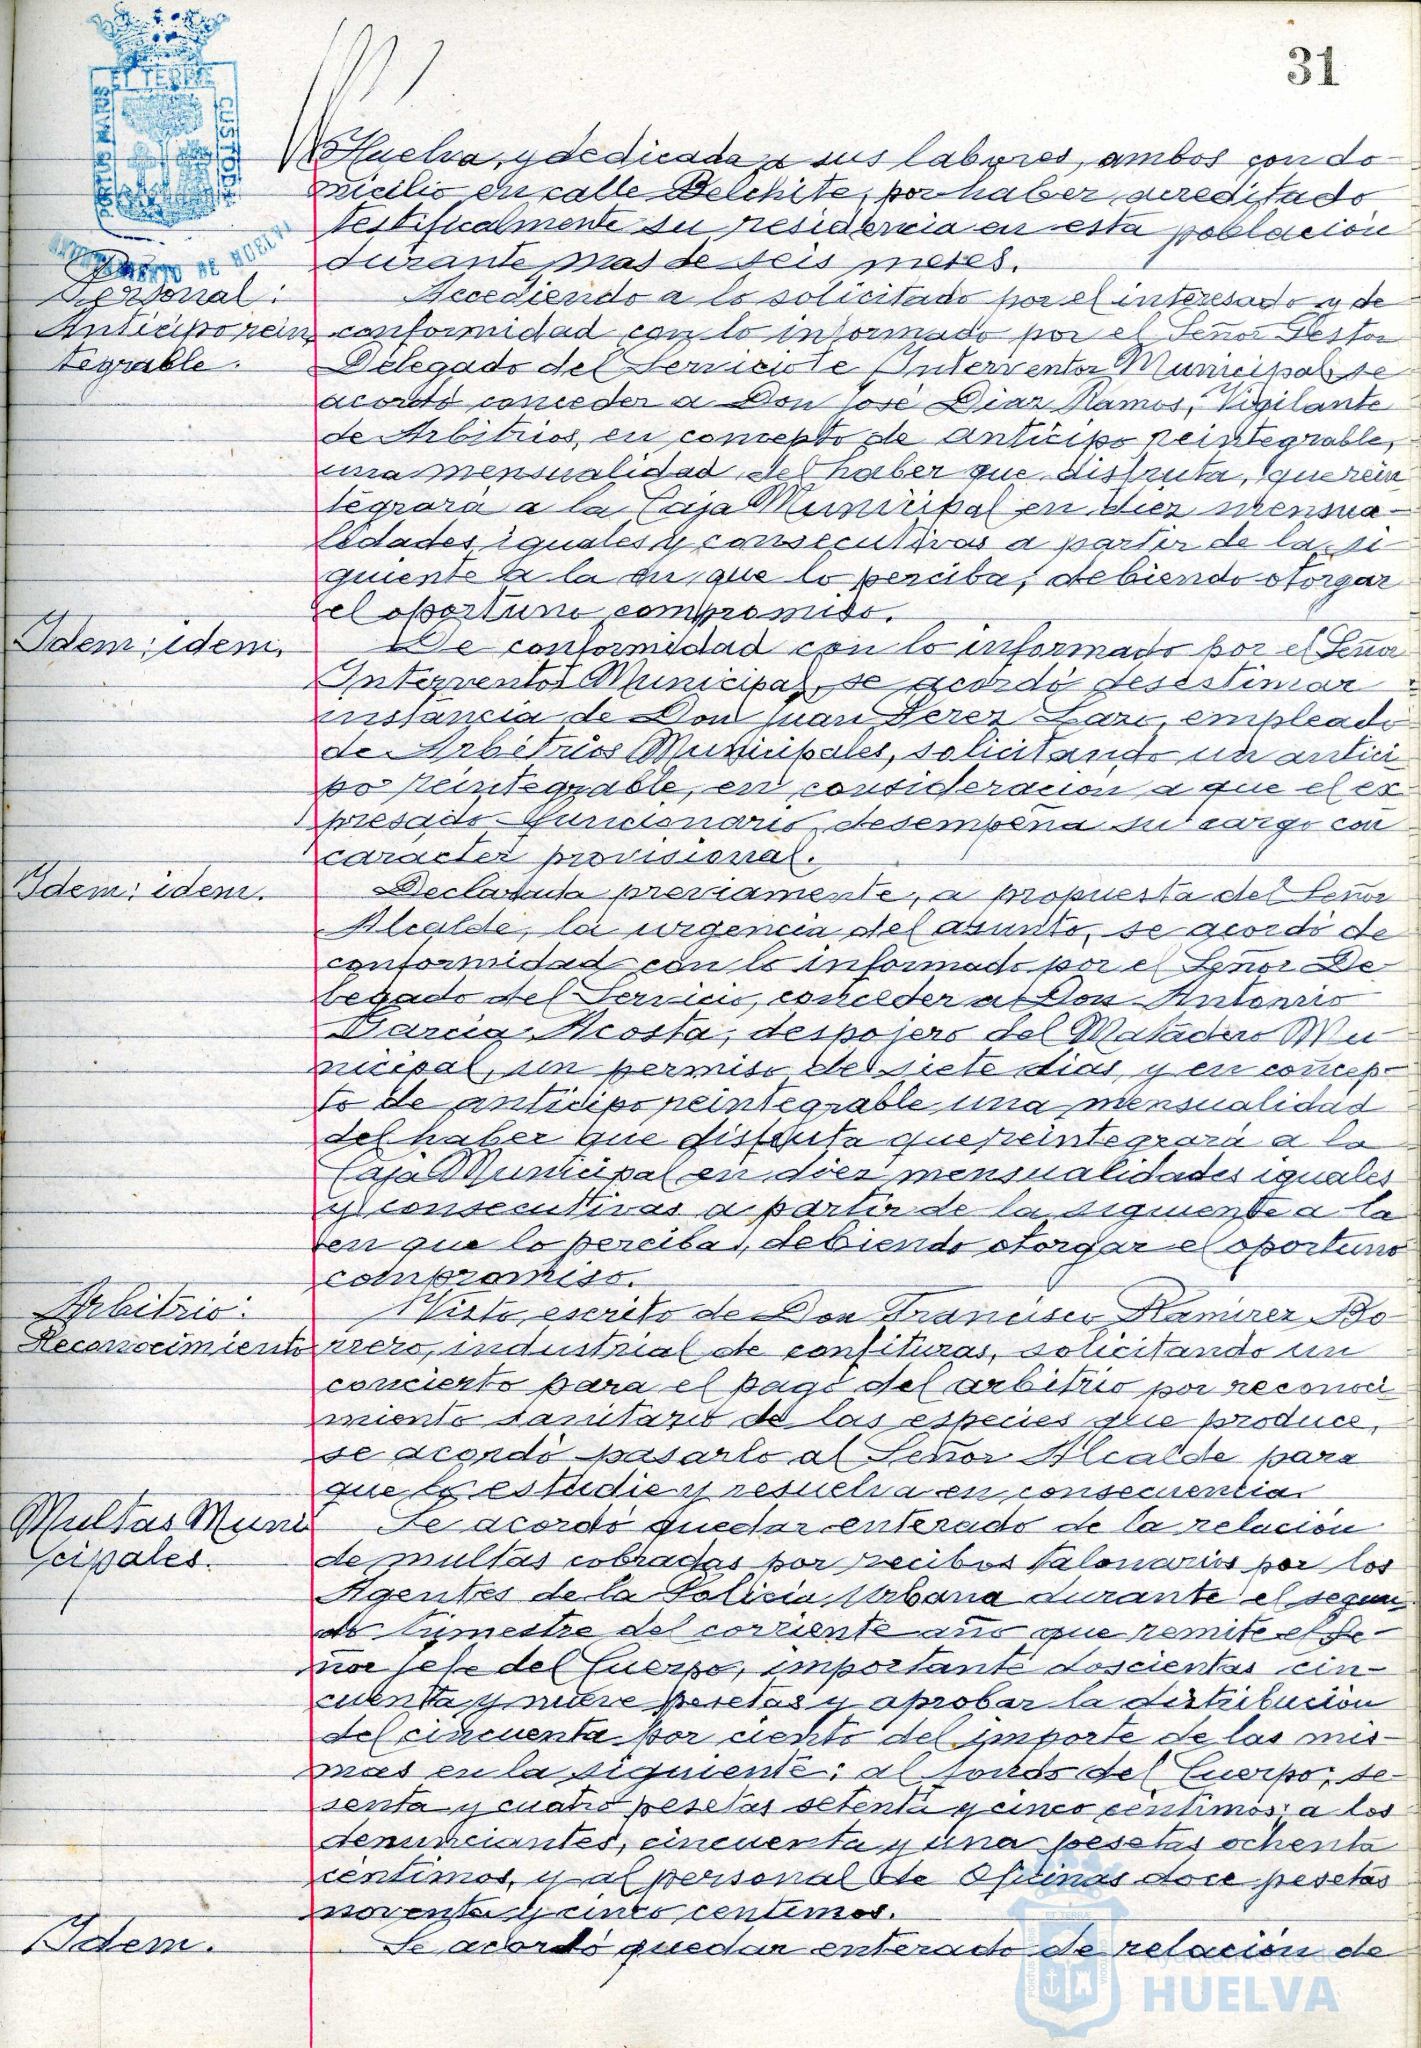 31
PORTUS MARIS ET TERRÆ CUSTODIA
AYUNTAMIENTO DE HUELVA
Huelva, y dedicada a sus labores, ambos con do-
micilio en calle Belchite, por haber acreditado
testificalmente su residencia en esta población
durante mas de seis meses.
Personal:
Anticipo rein
tegrable.
Accediendo a lo solicitado por el interesado y de
conformidad con lo informado por el Señor Gestor
Delegado del Servicio e Interventor Municipal, se
acordó conceder a Don José Diaz Ramos, Vigilante
de Arbitrios, en concepto de anticipo reintegrable,
una mensualidad del haber que disfruta, que rein
tegrará a la Caja Municipal en diez mensua-
lidades iguales y consecutivas a partir de la si
guiente a la en que lo perciba, debiendo otorgar
el oportuno compromiso.
Idem: idem.
De conformidad con lo informado por el Señor
Interventor Municipal, se acordó desestimar
instancia de Don Juan Perez empleado
de Arbitrios Municipales, solicitando un antici
po reintegrable, en consideración a que el ex
presado funcionario desempeña su cargo con
caracter provisional.
Idem: idem.
Declarada previamente, a propuesta del Señor
Alcalde, la urgencia del asunto, se acordó de
conformidad con lo informado por el Señor De
legado del Servicio, conceder a Don Antonio
Garcia Acosta, despojero del Matadero Mu-
nicipal, un permiso de siete dias, y en concep-
to de anticipo reintegrable una mensualidad
del haber que disfruta que reintegrará a la
Caja Municipal en diez mensualidades iguales
y consecutivas a partir de la siguiente a la
en que lo perciba, debiendo otorgar el oportuno
compromiso.
Arbitrio:
Reconocimiento
Visto, escrito de Don Francisco Ramirez Bo-
rrero, industrial de confituras, solicitando un
concierto para el pago del arbitrio por reconoci
miento sanitario de las especies que produce,
se acordó pasarlo al Señor Alcalde para
que lo estudie y resuelva en consecuencia.
Multas Muni
cipales.
Se acordó quedar enterado de la relación
de multas cobradas por recibos talonarios por los
Agentes de la Policia Urbana durante el segun
do trimestre del corriente año que remite el Se-
ñor Jefe del Cuerpo, importante doscientas cin-
cuenta y nueve pesetas y aprobar la distribución
del cincuenta por ciento del importe de las mis-
mas en la siguiente: al fondo del Cuerpo, se-
senta y cuatro pesetas setenta y cinco centimos; a los
denunciantes, cincuenta y una pesetas ochenta
centimos, y al personal de Oficinas doce pesetas
noventa y cinco centimos.
Idem.
Se acordó quedar enterado de relación de
Ayuntamiento de
HUELVA